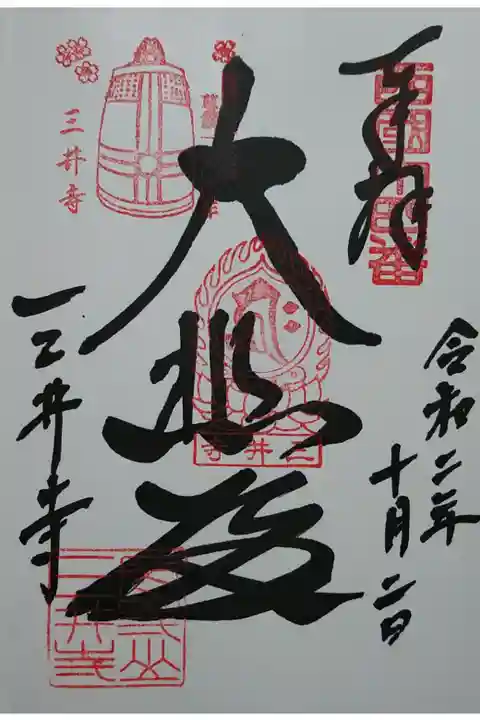 奉拝
西国十四番
令和二年
十月二日
大悲殿
三井寺
三井寺
三井寺
三井寺